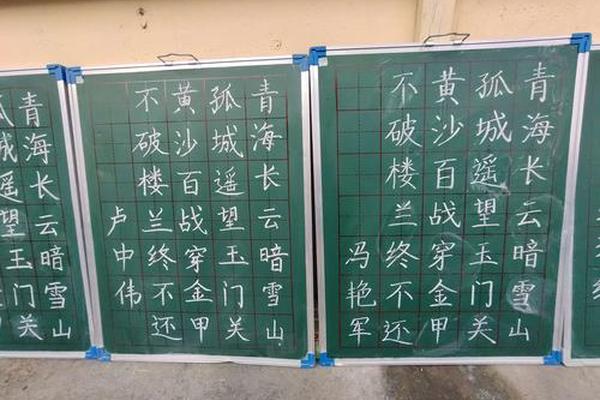 青海长云暗雪山
孤城遥望玉门关
青海长云暗雪山
孤城遥望玉门关
黄沙百战穿金甲
不破楼兰终不还
卢中伟
青海长云暗雪山
孤城遥望玉门关
黄沙百战穿金甲
不破楼兰终不还
冯艳军